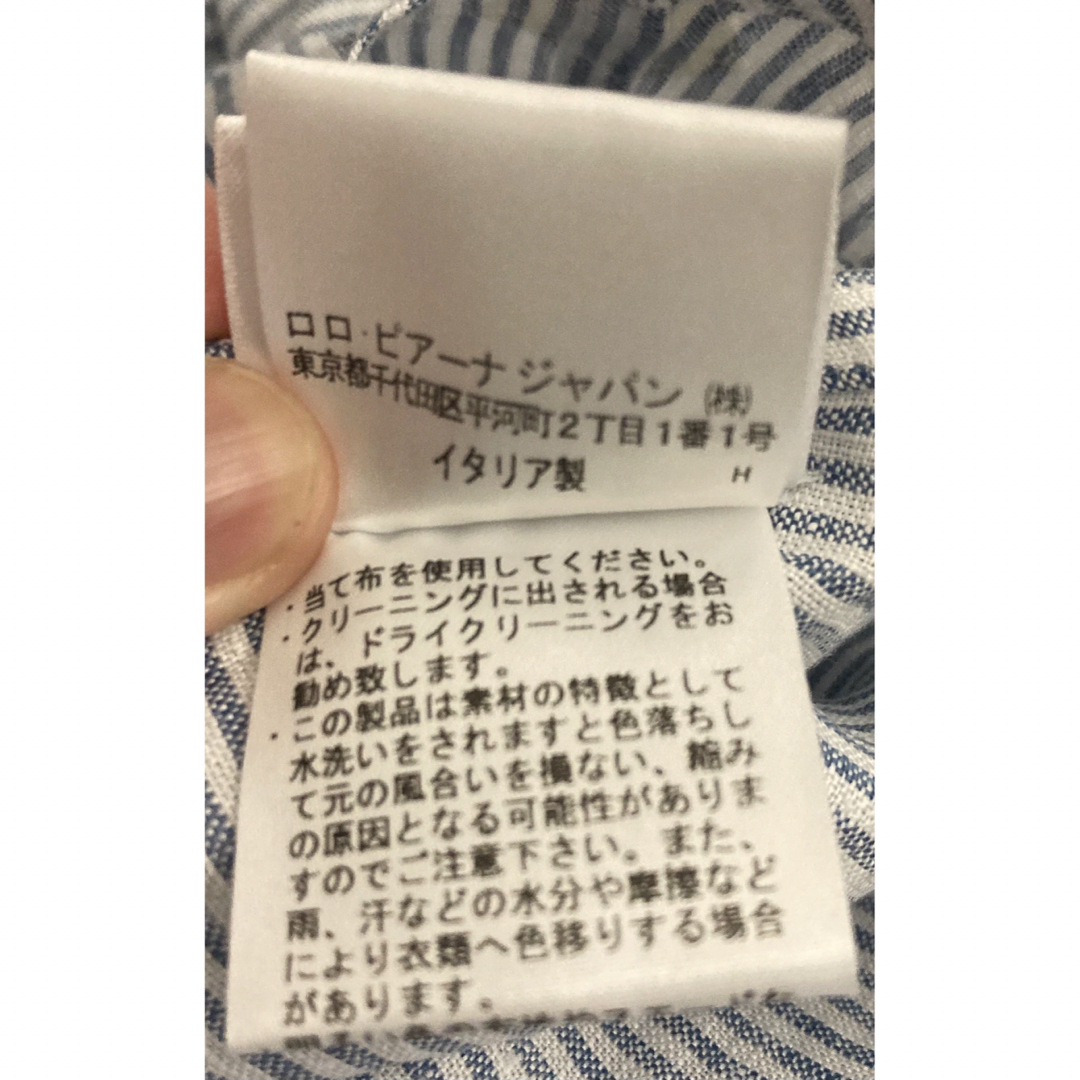 ロロ・ピアーナ ジャパン ㈱
東京都千代田区平河町2丁目1番1号
イタリア製 H
・当て布を使用してください。
・クリーニングに出される場合
は、ドライクリーニングをお
勧め致します。
・この製品は素材の特徴として
水洗いをされますと色落ちし
て元の風合いを損ない、縮み
の原因となる可能性がありま
すのでご注意下さい。また、
雨、汗などの水分や摩擦など
により衣類へ色移りする場合
があります。